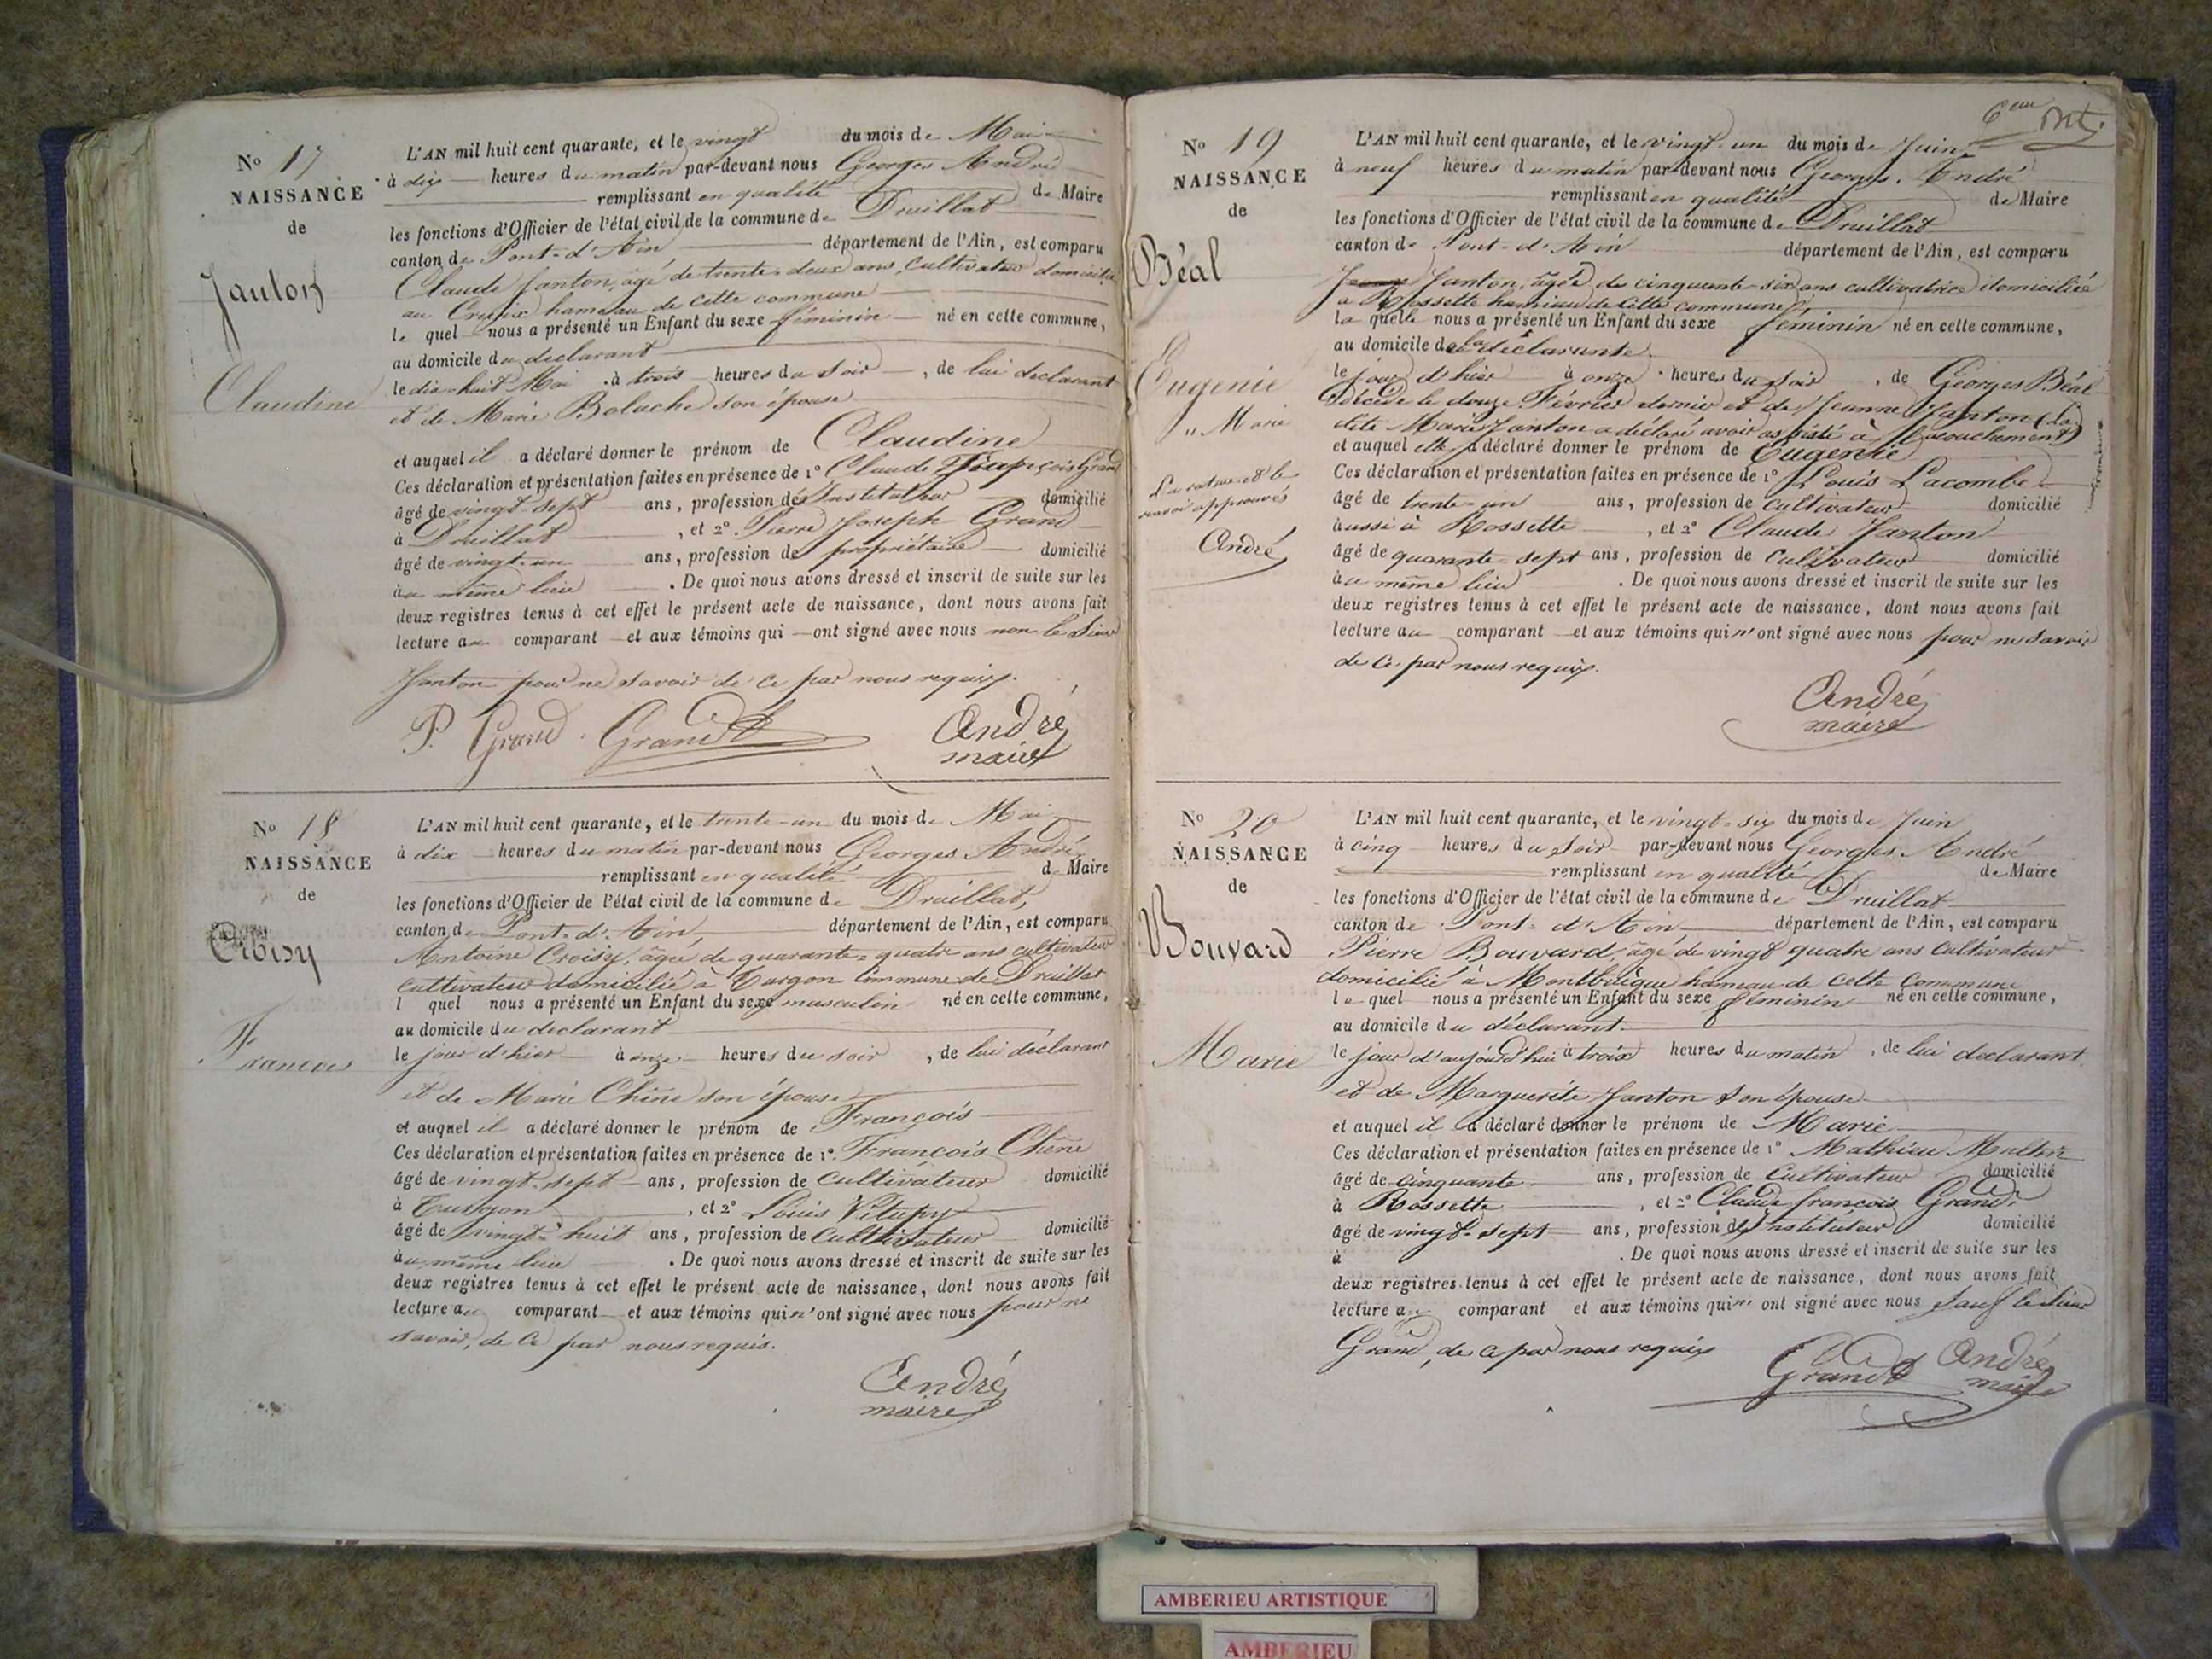 No 17
NAISSANCE
de
Janton
Claudine
L'AN mil huit cent quarante, et le vingt du mois de Mai
à dix heures du matin par-devant nous Georges André
remplissant en qualité de Maire
les fonctions d'Officier de l'état civil de la commune de Druillat
canton de Pont-d'Ain département de l'Ain, est comparu
Claude Janton, âgé de trente-deux ans, cultivateur domicilié
au Cruix hameau de cette commune
le quel nous a présenté un Enfant du sexe féminin né en cette commune,
au domicile du déclarant
le dix-huit Mai à trois heures du soir, de lui déclarant
et de Marie Boluche son épouse
et auquel il a déclaré donner le prénom de Claudine
Ces déclaration et présentation faites en présence de 1° Claude François Grand
âgé de vingt sept ans, profession d'Instituteur domicilié
à Druillat, et 2° Pierre Joseph Grand
âgé de vingt-un ans, profession de propriétaire domicilié
au même lieu. De quoi nous avons dressé et inscrit de suite sur les
deux registres tenus à cet effet le présent acte de naissance, dont nous avons fait
lecture au comparant et aux témoins qui ont signé avec nous non le Sieur
Janton pour ne savoir de ce par nous requis.
P. Grand Grand André
maire
No 18
NAISSANCE
de
Croisy
François
L'AN mil huit cent quarante, et le trente-un du mois de Mai
à dix heures du matin par-devant nous Georges André
remplissant en qualité de Maire
les fonctions d'Officier de l'état civil de la commune de Druillat,
canton de Pont-d'Ain, département de l'Ain, est comparu
Antoine Croisy, âgé de quarante-quatre ans cultivateur
cultivateur domicilié à Turgon commune de Druillat
l quel nous a présenté un Enfant du sexe masculin né en cette commune,
au domicile du déclarant
le jour d'hier à onze heures du soir, de lui déclarant
et de Marie Chêne son épouse
et auquel il a déclaré donner le prénom de François
Ces déclaration et présentation faites en présence de 1° François Chêne
âgé de vingt-sept ans, profession de cultivateur domicilié
à Turgon, et 2° Louis
âgé de vingt-huit ans, profession de Cultivateur domicilié
au même lieu. De quoi nous avons dressé et inscrit de suite sur les
deux registres tenus à cet effet le présent acte de naissance, dont nous avons fait
lecture au comparant et aux témoins qui n'ont signé avec nous pour ne
savoir, de ce par nous requis.
André
maire
6eme
No 19
NAISSANCE
de
Béal
Eugenie
"Marie
La rature et le
renvoi approuvés
André
L'AN mil huit cent quarante, et le vingt-un du mois de Juin
à neuf heures du matin par-devant nous Georges André
remplissant en qualité de Maire
les fonctions d'Officier de l'état civil de la commune de Druillat
canton de Pont-d'Ain département de l'Ain, est comparu
Janton, âgée de cinquante-six ans cultivatrice domiciliée
à Rossette hameau de cette commune
la quelle nous a présenté un Enfant du sexe féminin né en cette commune,
au domicile de la déclarante
le jour d'hier à onze heures du soir, de Georges Béal
décédé le douze Février dernier et de Jeanne Janton (la
dite Marie Janton a déclaré avoir assisté à l'acouchement)
et auquel elle a déclaré donner le prénom de Eugenie
Ces déclaration et présentation faites en présence de 1° Louis Lacombe
âgé de trente-un ans, profession de cultivateur domicilié
aussi à Rossette, et 2° Claude Janton
âgé de quarante-sept ans, profession de Cultivateur domicilié
au même lieu. De quoi nous avons dressé et inscrit de suite sur les
deux registres tenus à cet effet le présent acte de naissance, dont nous avons fait
lecture au comparant et aux témoins qui n'ont signé avec nous pour ne savoir
de ce par nous requis.
André
maire
No 20
NAISSANCE
de
Bouvard
Marie
L'AN mil huit cent quarante, et le vingt-six du mois de Juin
à cinq heures du soir par-devant nous Georges André
remplissant en qualité de Maire
les fonctions d'Officier de l'état civil de la commune de Druillat
canton de Pont-d'Ain département de l'Ain, est comparu
Pierre Bouvard, âgé de vingt quatre ans cultivateur
domicilié à Montbègue hameau de cette Commune
le quel nous a présenté un Enfant du sexe féminin né en cette commune,
au domicile du déclarant.
le jour d'aujourd'hui à trois heures du matin, de lui déclarant
et de Marguerite Janton son épouse
et auquel il a déclaré donner le prénom de Marie
Ces déclaration et présentation faites en présence de 1° Mathieu
âgé de cinquante ans, profession de Cultivateur domicilié
à Rossette, et 2° Claude françois Grand
âgé de vingt-sept ans, profession d'Instituteur domicilié
à . De quoi nous avons dressé et inscrit de suite sur les
deux registres tenus à cet effet le présent acte de naissance, dont nous avons fait
lecture au comparant et aux témoins qui n' ont signé avec nous sauf le Sieur
Grand, de ce par nous requis
Grand André
maire
AMBERIEU ARTISTIQUE
AMBERIEU